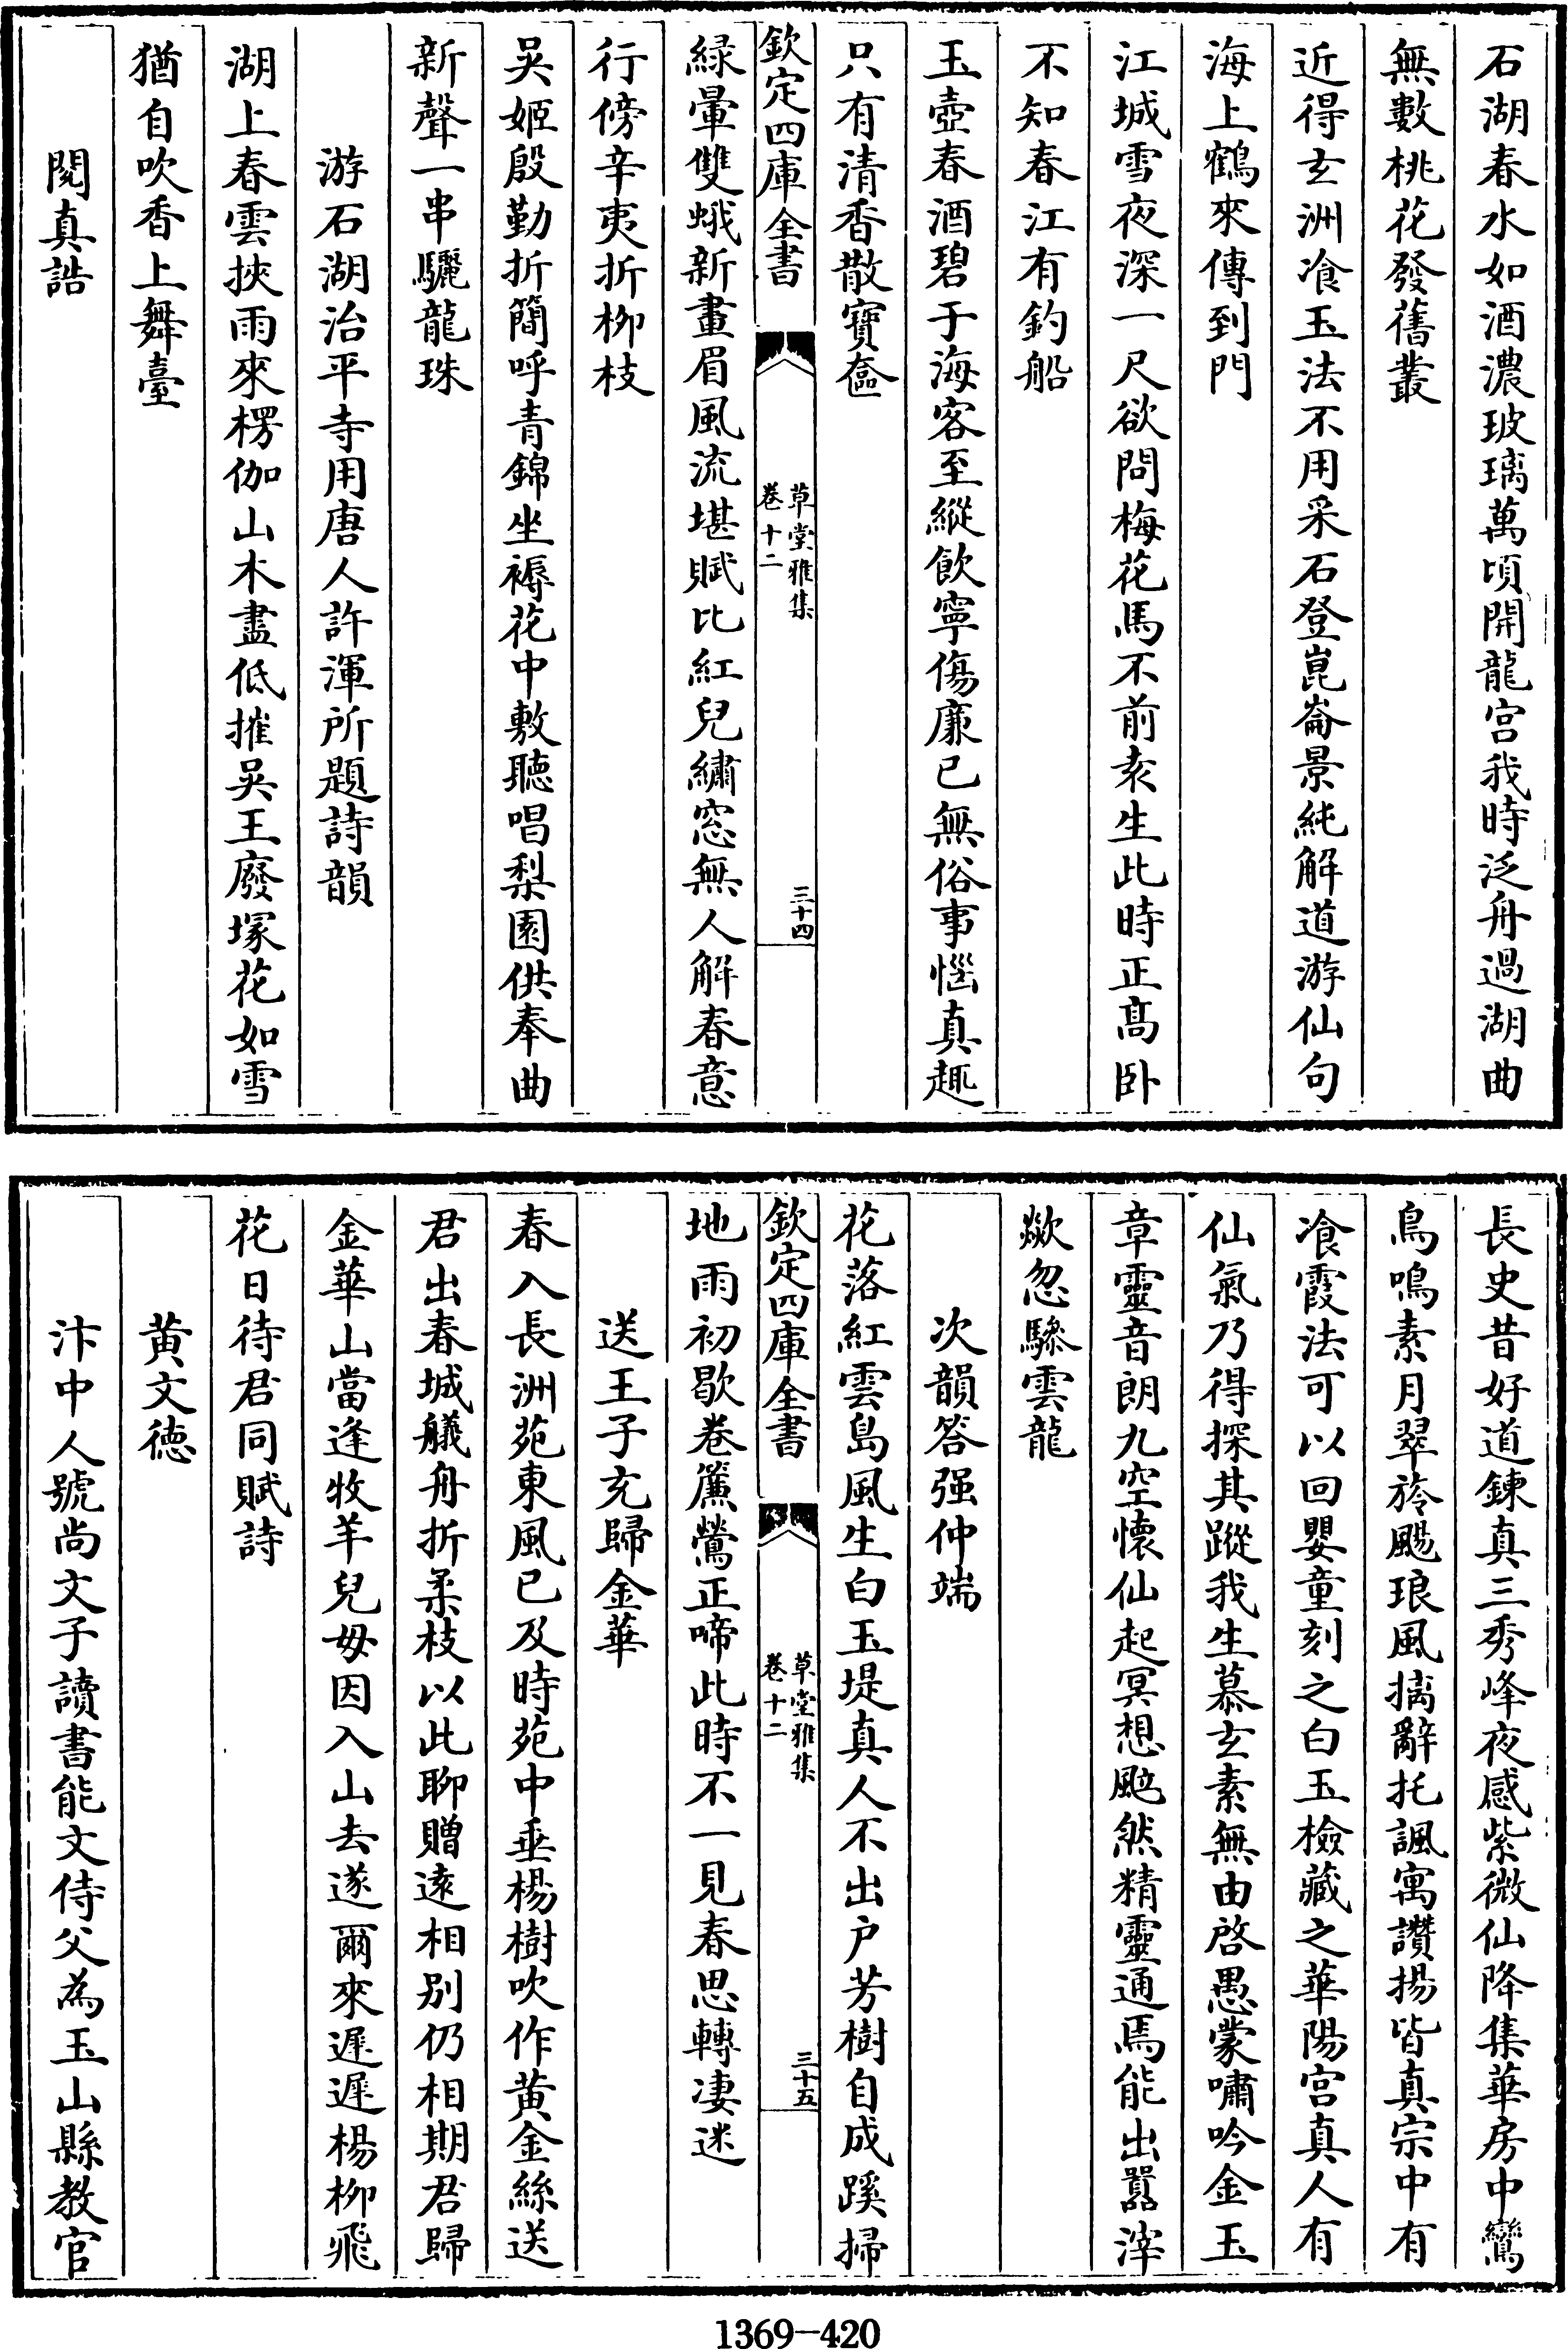 石湖春水如酒濃玻璃萬頃開龍宫我時泛舟過湖曲
無數桃花發舊叢
近得玄洲飡玉法不用采石登崑崙景純解道游仙句
海上鶴來傳到門
江城雪夜深一尺欲問梅花馬不前袁生此時正髙卧
不知春江有釣船
玉壺春酒碧于海客至縱飲寧傷廉已無俗事惱真趣
只有清香散寶奩
欽定四庫全書
草堂雅集
卷十二
三十四
緑暈雙蛾新畫眉風流堪賦比紅兒繡窓無人解春意
行傍辛夷折柳枝
吳姬殷勤折簡呼青錦坐褥花中敷聽唱梨園供奉曲
新聲一串驪龍珠
游石湖治平寺用唐人許渾所題詩韻
湖上春雲挾雨來楞伽山木盡低摧吳王廢塚花如雪
猶自吹香上舞臺
閱真誥
長史昔好道鍊真三秀峰夜感紫微仙降集華房中鸞
鳥鳴素月翠旍颺琅風摛辭托諷寓讚揚皆真宗中有
飡霞法可以回嬰童刻之白玉檢藏之華陽宫真人有
仙氣乃得探其蹤我生慕玄素無由啓愚蒙嘯吟金玉
章靈音朗九空懷仙起冥想飈然精靈通焉能出囂滓
歘忽驂雲龍
次韻答强仲端
花落紅雲島風生白玉堤真人不出户芳樹自成蹊掃
欽定四庫全書
草堂雅集
卷十二
三十五
地雨初歇卷簾鶯正啼此時不一見春思轉凄迷
送王子充歸金華
春入長洲苑東風已及時苑中垂楊樹吹作黄金絲送
君出春城艤舟折柔枝以此聊贈逺相别仍相期君歸
金華山當逢牧羊兒毋因入山去遂爾來遲遲楊柳飛
花日待君同賦詩
黄文徳
汴中人號尚文子讀書能文侍父為玉山縣教官
1369-420